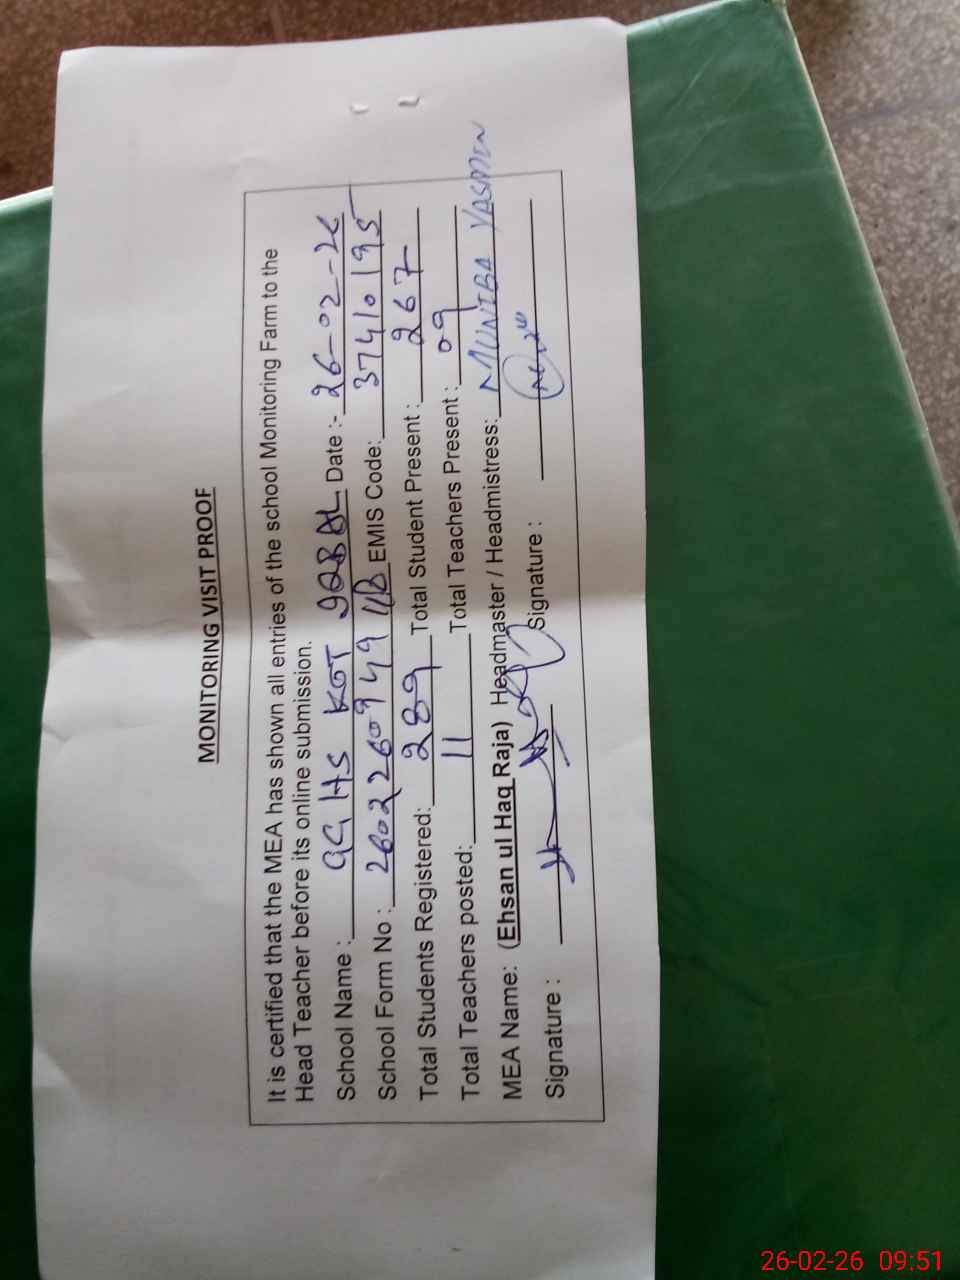 MONITORING VISIT PROOF
It is certified that the MEA has shown all entries of the school Monitoring Farm to the
Head Teacher before its online submission.
School Name : GGHS KOT IQBAL Date :- 26-02-26
School Form No : 2602260949 EMIS Code: 37410195
Total Students Registered: 289 Total Student Present : 267
Total Teachers posted: 11 Total Teachers Present : 09
MEA Name: (Ehsan ul Haq Raja) Headmaster / Headmistress: MUNIBA YASMIN
Signature : Signature :
26-02-26 09:51